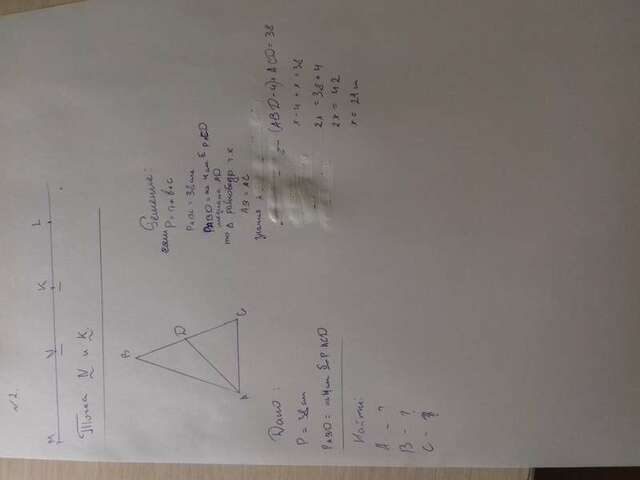 №2.
M N K L
Точки N и K.
B
D
A C
Дано:
P = 38 см
PABD = на 4 см Б PACD
Найти:
A - ?
B - ?
C - ?
Решение:
P = a+b+c
= 38 см
PABD = на 4 см Б PACD
медиана AD
то Δ равнобедр т.к
AB = AC
(ABD-4)+ACD=38
x-4+x=38
2x = 38+4
2x = 42
x = 21 см